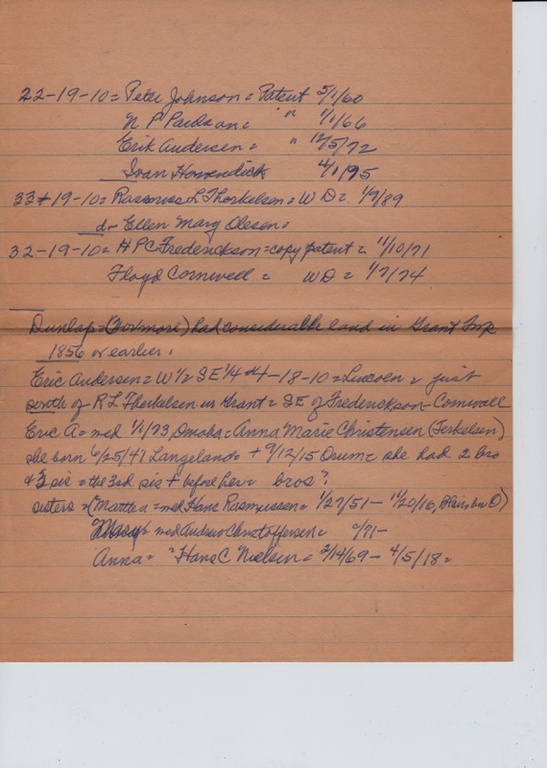 22-19-10 = Peter Johnson = Patent 5/1/60
N P Paulson = " 1/1/66
Erik Andersen = " 12/5/72
Ivan 4/1/95
33-19-10 = Rasmuss L Therkelson = W D = 1/9/89
dr Ellen Mary Olesen =
32-19-10 = H P C Frederickson = copy patent = 11/10/71
Floyd Cornwell = WD = 1/7/74
Dunlap = (Govmore) had considerable land in Grant Twp
1856 or earlier.
Eric Andersen = W 1/2 SE 1/4 4-18-10 = Lincoln = just
south of R L Therkelsen in Grant = SE of Frederickson - Cornwell
Eric A = med 1/1/73, Omaha = Anna Marie Christensen (Terkelsen)
she born 6/25/47 Langeland = + 9/12/15 Orum = she had 2 bro
& 3 sis = the 3rd sis + before her = bros?
sisters = (Martha = med Hans Rasmussen = 1/27/51 - 11/20/16, Blair)
Mary = med Andrew Christoffersen = /71-
Anna = " Hans C Nielsen = 2/14/69 - 4/5/18 =